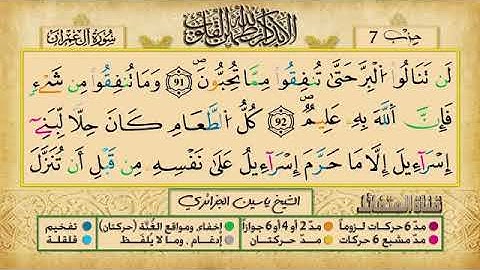 حزب 7
ألا بذكر الله تطمئن القلوب
سورة آل عمران
لَن تَنَالُوا۟ اُ۬لْبِرَّ حَتَّىٰ تُنفِقُوا۟ مِمَّا تُحِبُّونَۖ 91 وَمَا تُنفِقُوا۟ مِن شَےْءٖ
فَإِنَّ اَ۬للَّهَ بِهِۦ عَلِيمٞۖ 92 كُلُّ اُ۬لطَّعَامِ كَانَ حِلّاٗ لِّبَنِےٓ
إِسْرَآءِيلَ إِلَّا مَا حَرَّمَ إِسْرَآءِيلُ عَلَىٰ نَفْسِهِۦ مِن قَبْلِ أَن تُنَزَّلَ
الشيخ ياسين الجزائري
مدّ 6 حركات لزوماً مدّ 2 أو 4 أو 6 جوازاً إخفاء، ومواقع الغُنَّة (حركتان) تفخيم
مدّ مشبع 6 حركات مدّ حركتان إدغام، وما لا يُلفَظ قلقلة